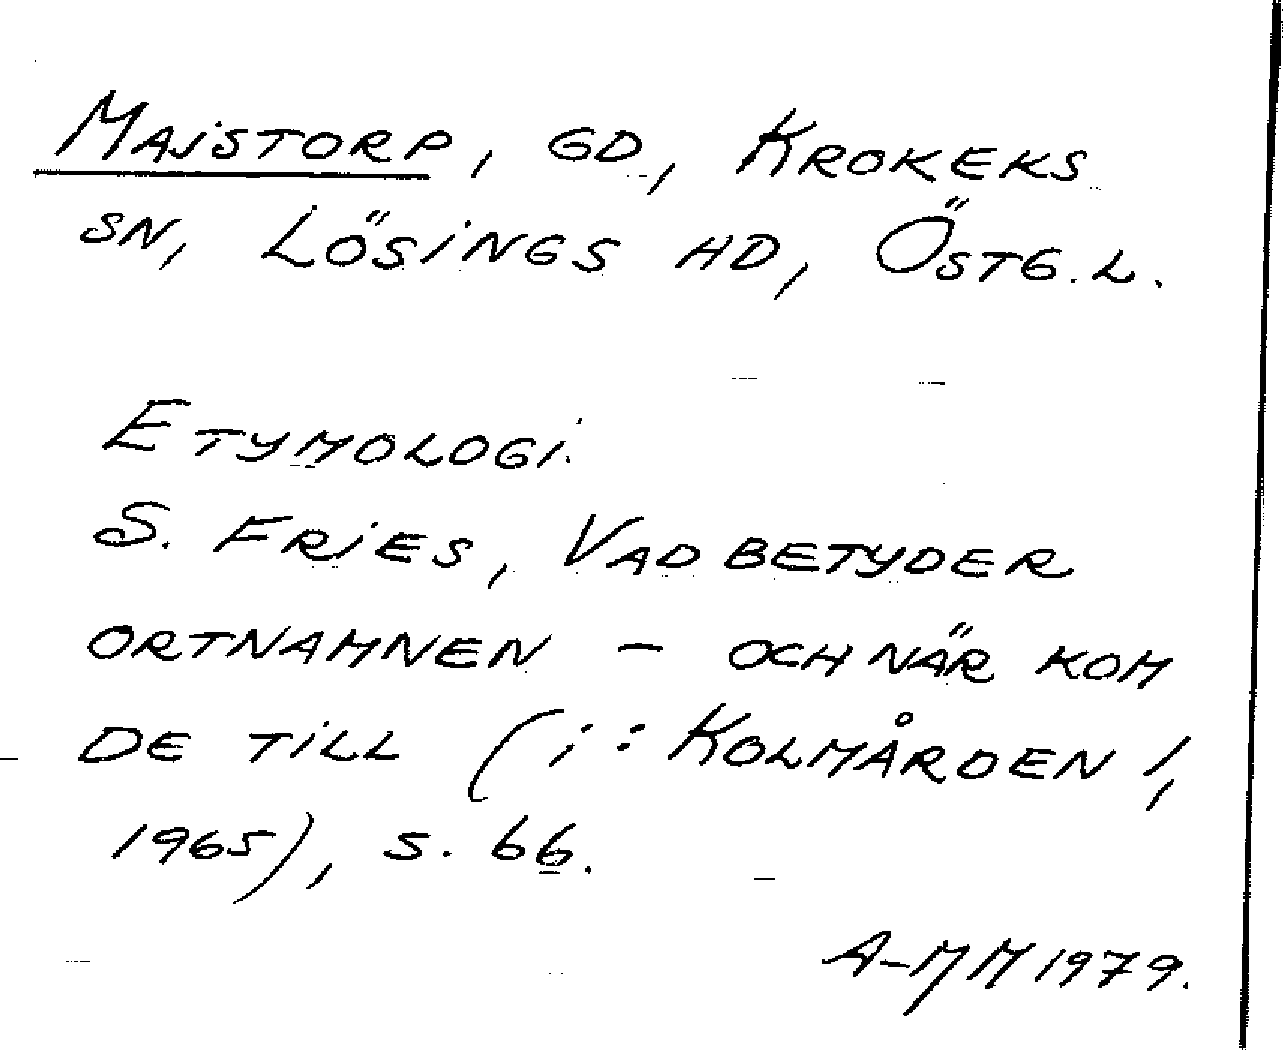 Majstorp, gd, Krokeks
sn, Lösings hd, Östg. l.
Etymologi.
S. Fries, Vad betyder
ortnamnen - och när kom
de till (i: Kolmården 1,
1965), s. 66.
A-MM 1979.